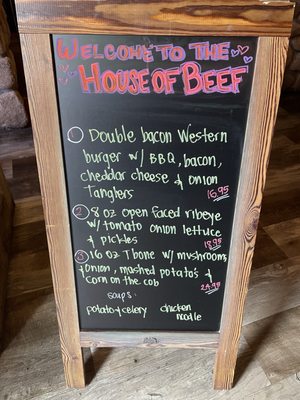 Welcome to the
House of Beef
① Double bacon Western
burger w/ BBQ, bacon,
cheddar cheese & onion
Tanglers
16.95
② 8 oz open faced ribeye
w/ tomato onion lettuce
& pickles
18.95
③ 16 oz T bone w/ mushrooms
& onion, mashed potatos &
corn on the cob
24.95
Soups
potato & celery chicken
noodle